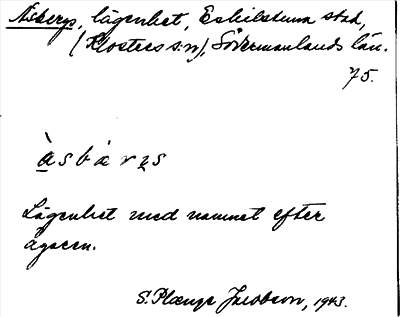 Åsbergs, lägenhet, Eskilstuna stad,
(Klosters s:n), Södermanlands län.
75.
àsbàrs
Lägenhet med namnet efter
ägaren.
S. Plænge Jacobson, 1943.